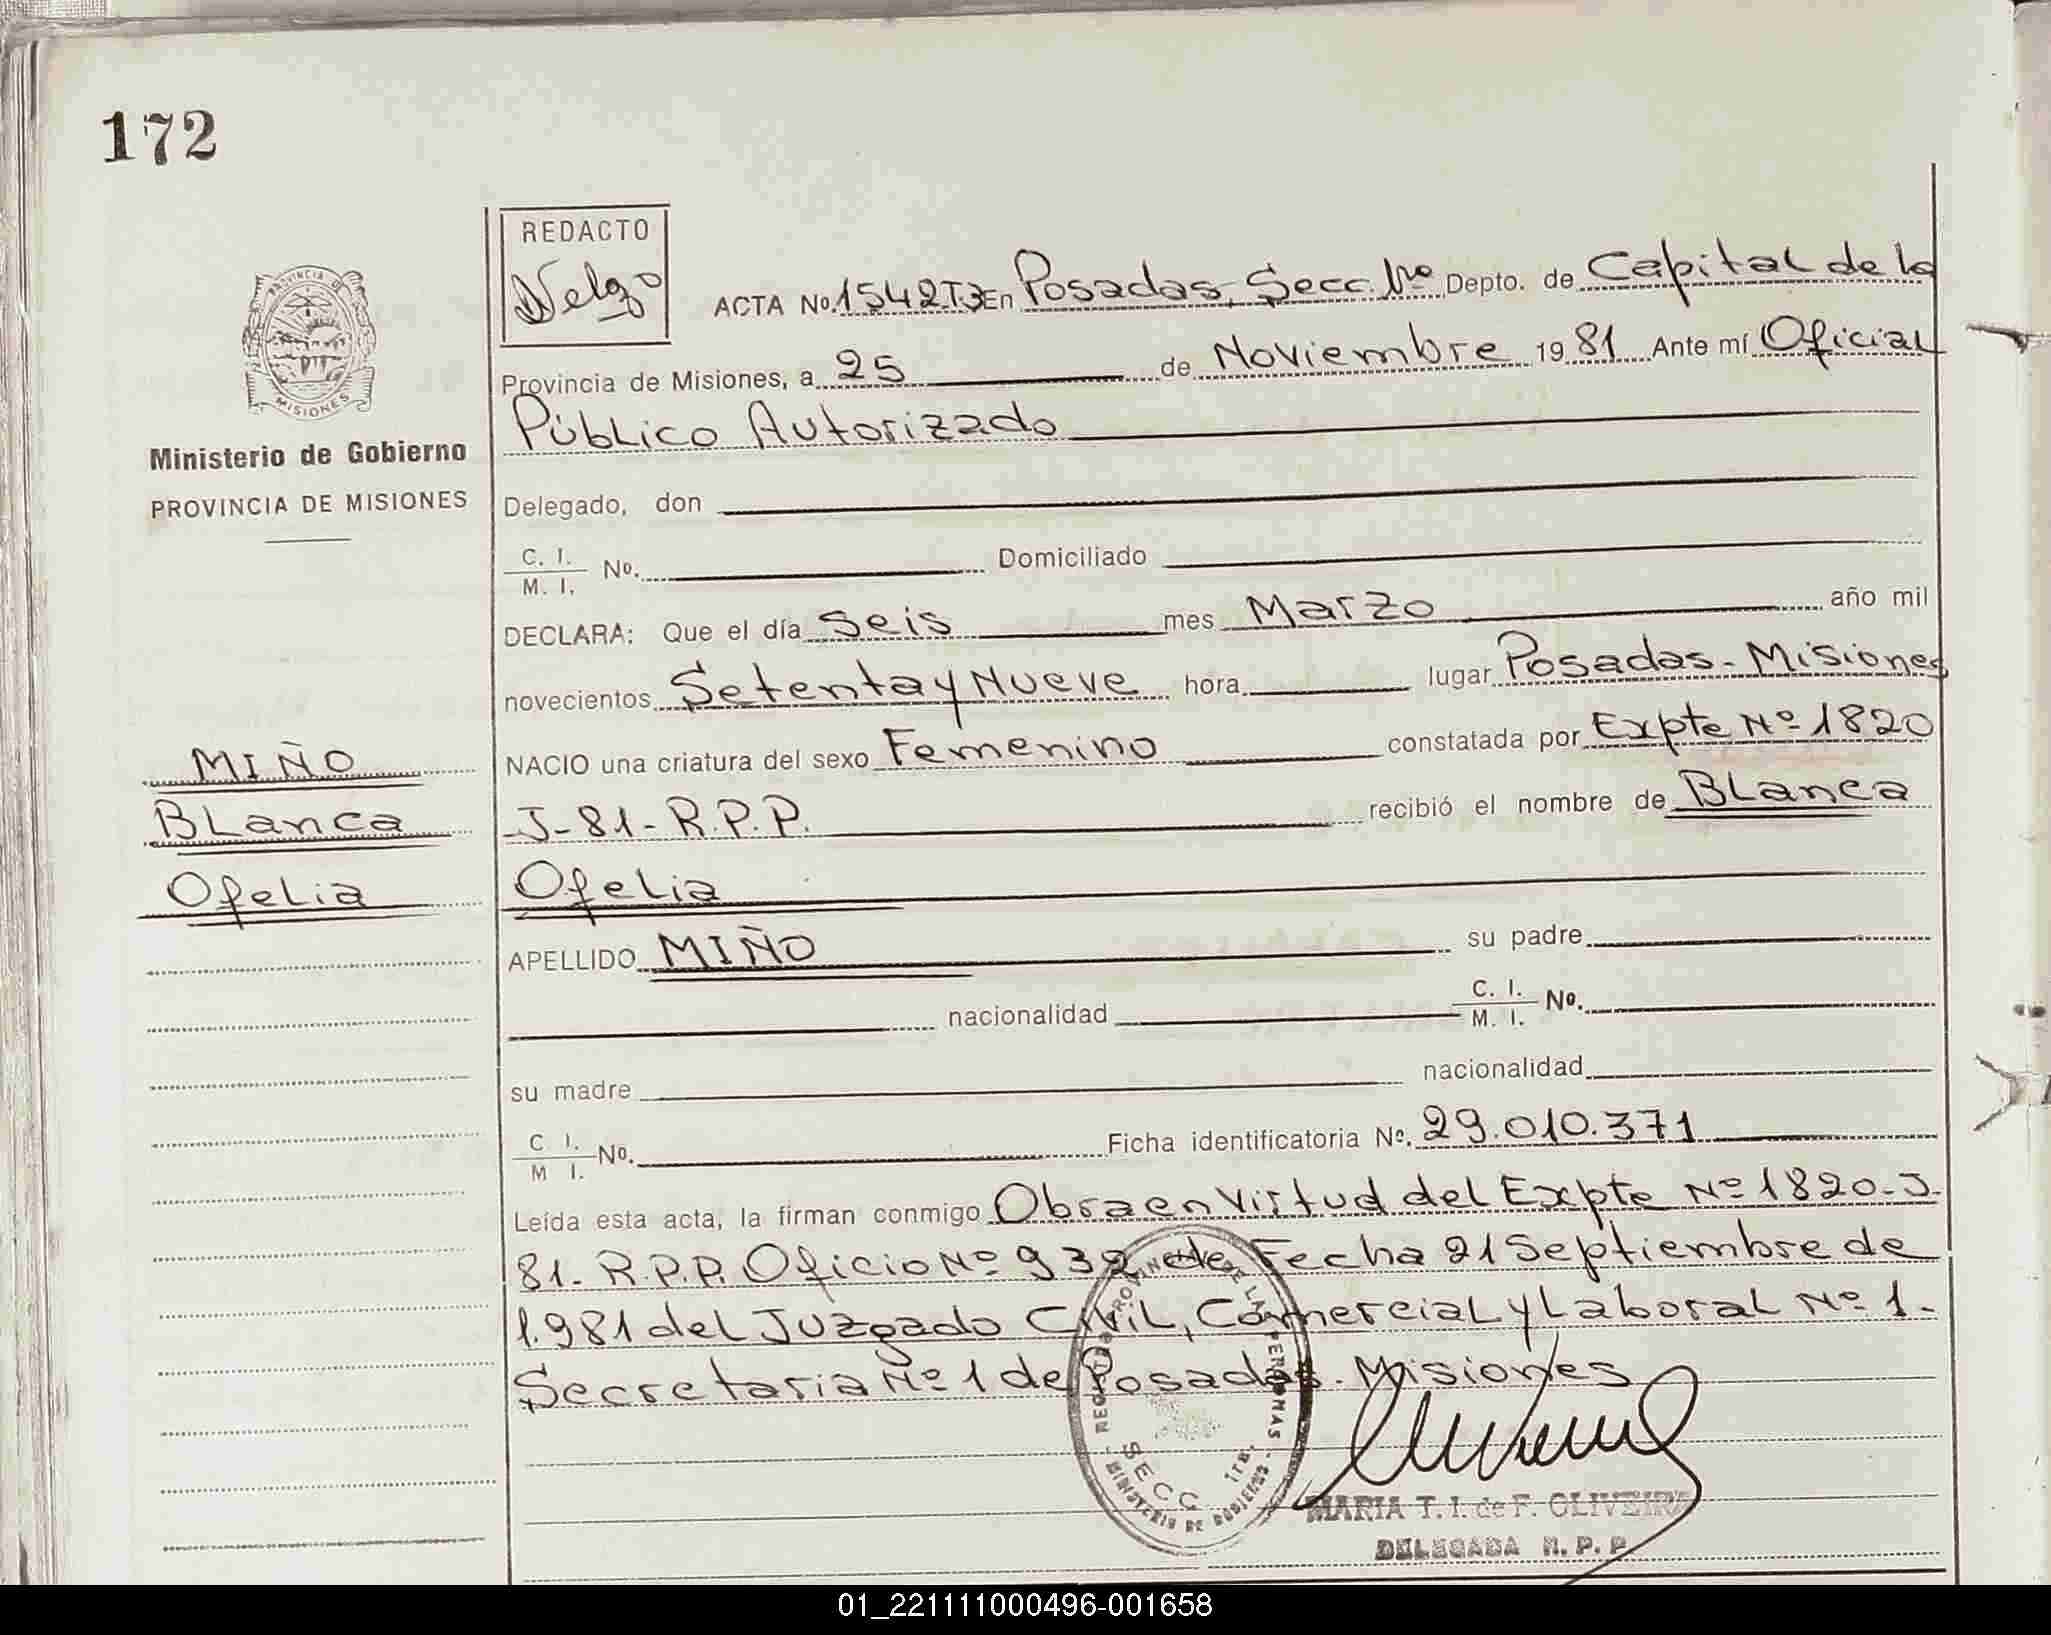 172
REDACTO
Nelgo
PROVINCIA DE
MISIONES
Ministerio de Gobierno
PROVINCIA DE MISIONES
ACTA No. 1542T3 En Posadas, Secc. 1ro Depto. de Capital de la
Provincia de Misiones, a 25 de Noviembre 19 81 Ante mí Oficial
Público Autorizado
Delegado, don
C. I.
M. I. No. Domiciliado
DECLARA: Que el día Seis mes Marzo año mil
novecientos Setenta y Nueve hora lugar Posadas - Misiones
NACIO una criatura del sexo Femenino constatada por Expte Nº 1820
J-81-R.P.P. recibió el nombre de Blanca
Ofelia
APELLIDO MIÑO su padre
nacionalidad C. I.
M. I. No.
su madre nacionalidad
C. I.
M I. No. Ficha identificatoria No. 29.010.371
Leída esta acta, la firman conmigo Obra en Virtud del Expte Nº 1820-J-
81-R.P.P. Oficio Nº 932 de Fecha 21 Septiembre de
1.981 del Juzgado Civil, Comercial y Laboral Nº 1-
Secretaria Nº 1 de Posadas - Misiones
MIÑO
Blanca
Ofelia
SECC 1ra.
MINISTERIO DE GOBIERNO
MARIA T. I. de F. OLIVEIRA
DELEGADA R. P. P.
01_221111000496-001658